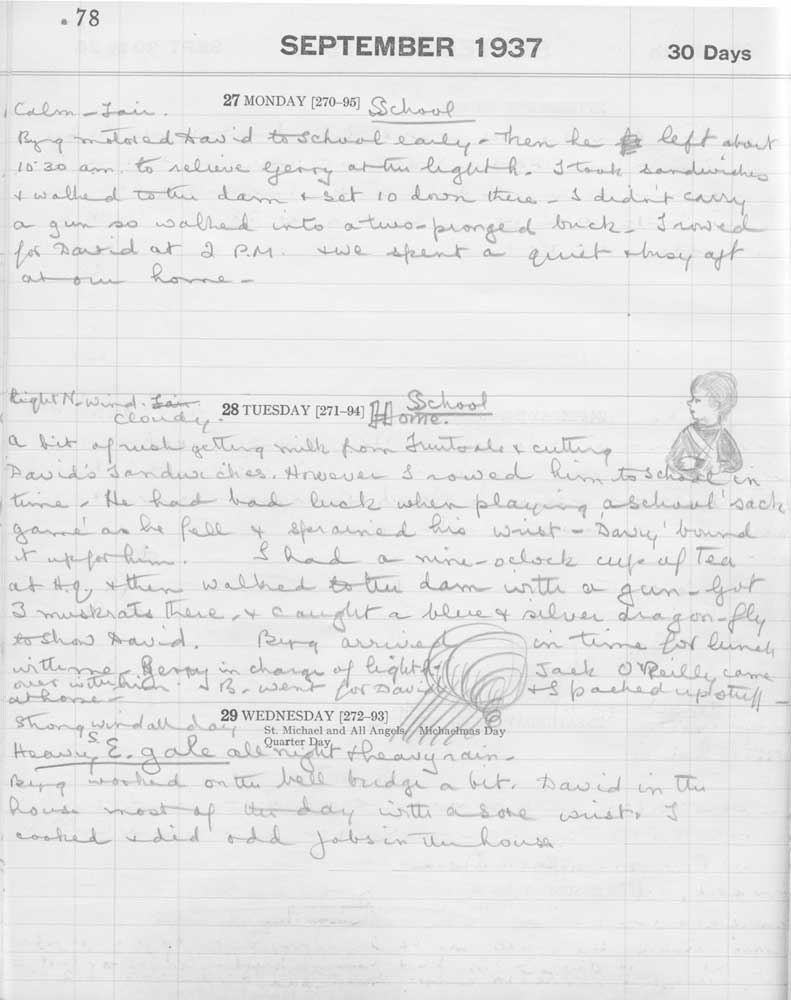 . 78
SEPTEMBER 1937
30 Days
27 MONDAY [270–95] School
Calm – Fair.
Byng motored David to School early – Then he left about
10.30 am. to relieve Gerry at the lighth. I took sandwiches
& walked to the dam & set 10 down there – I didn't carry
a gun so walked into a two-pronged buck – I rowed
for David at 2 P.M. & we spent a quiet & busy aft
at our home –
Light N. wind. Fair
cloudy.
28 TUESDAY [271–94] Home. School
a bit of rush getting milk from & cutting
David's Sandwiches. However I rowed him to School in
time – He had bad luck when playing a school 'sack
game' as he fell & sprained his wrist – 'Davy' bound
it up for him. I had a nine-oclock cup of Tea
at H.Q. & then walked to the dam with a gun – Got
3 muskrats there – & caught a blue & silver dragon-fly
to show David. Byng arrived in time for lunch
with me – Gerry in charge of lighth – Jack O'Reilly came
over with him. & B. went for David & I packed up stuff –
at home –
29 WEDNESDAY [272–93]
St. Michael and All Angels. Michaelmas Day
Quarter Day
Strong wind all day
Heavy S. E. gale all night & heavy rain –
Byng worked on the bell bridge a bit. David in the
house most of the day with a sore wrist. I
cooked & did odd jobs in the house